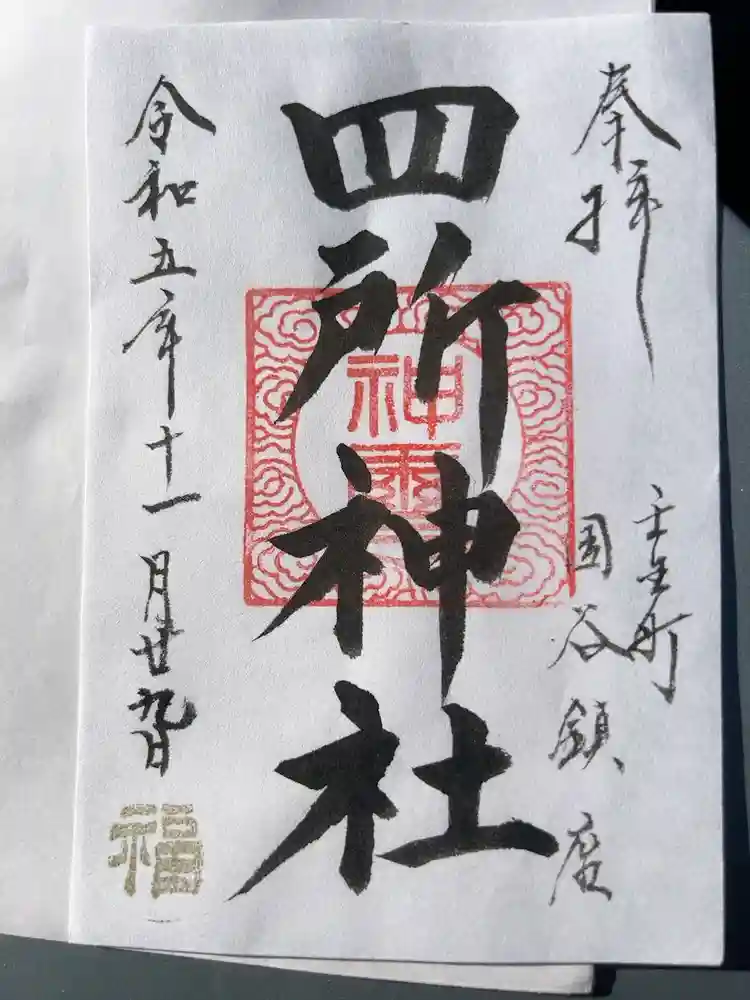 奉拝
壬生町
国谷鎮座
四所神社
神
令和五年十一月廿九日
福